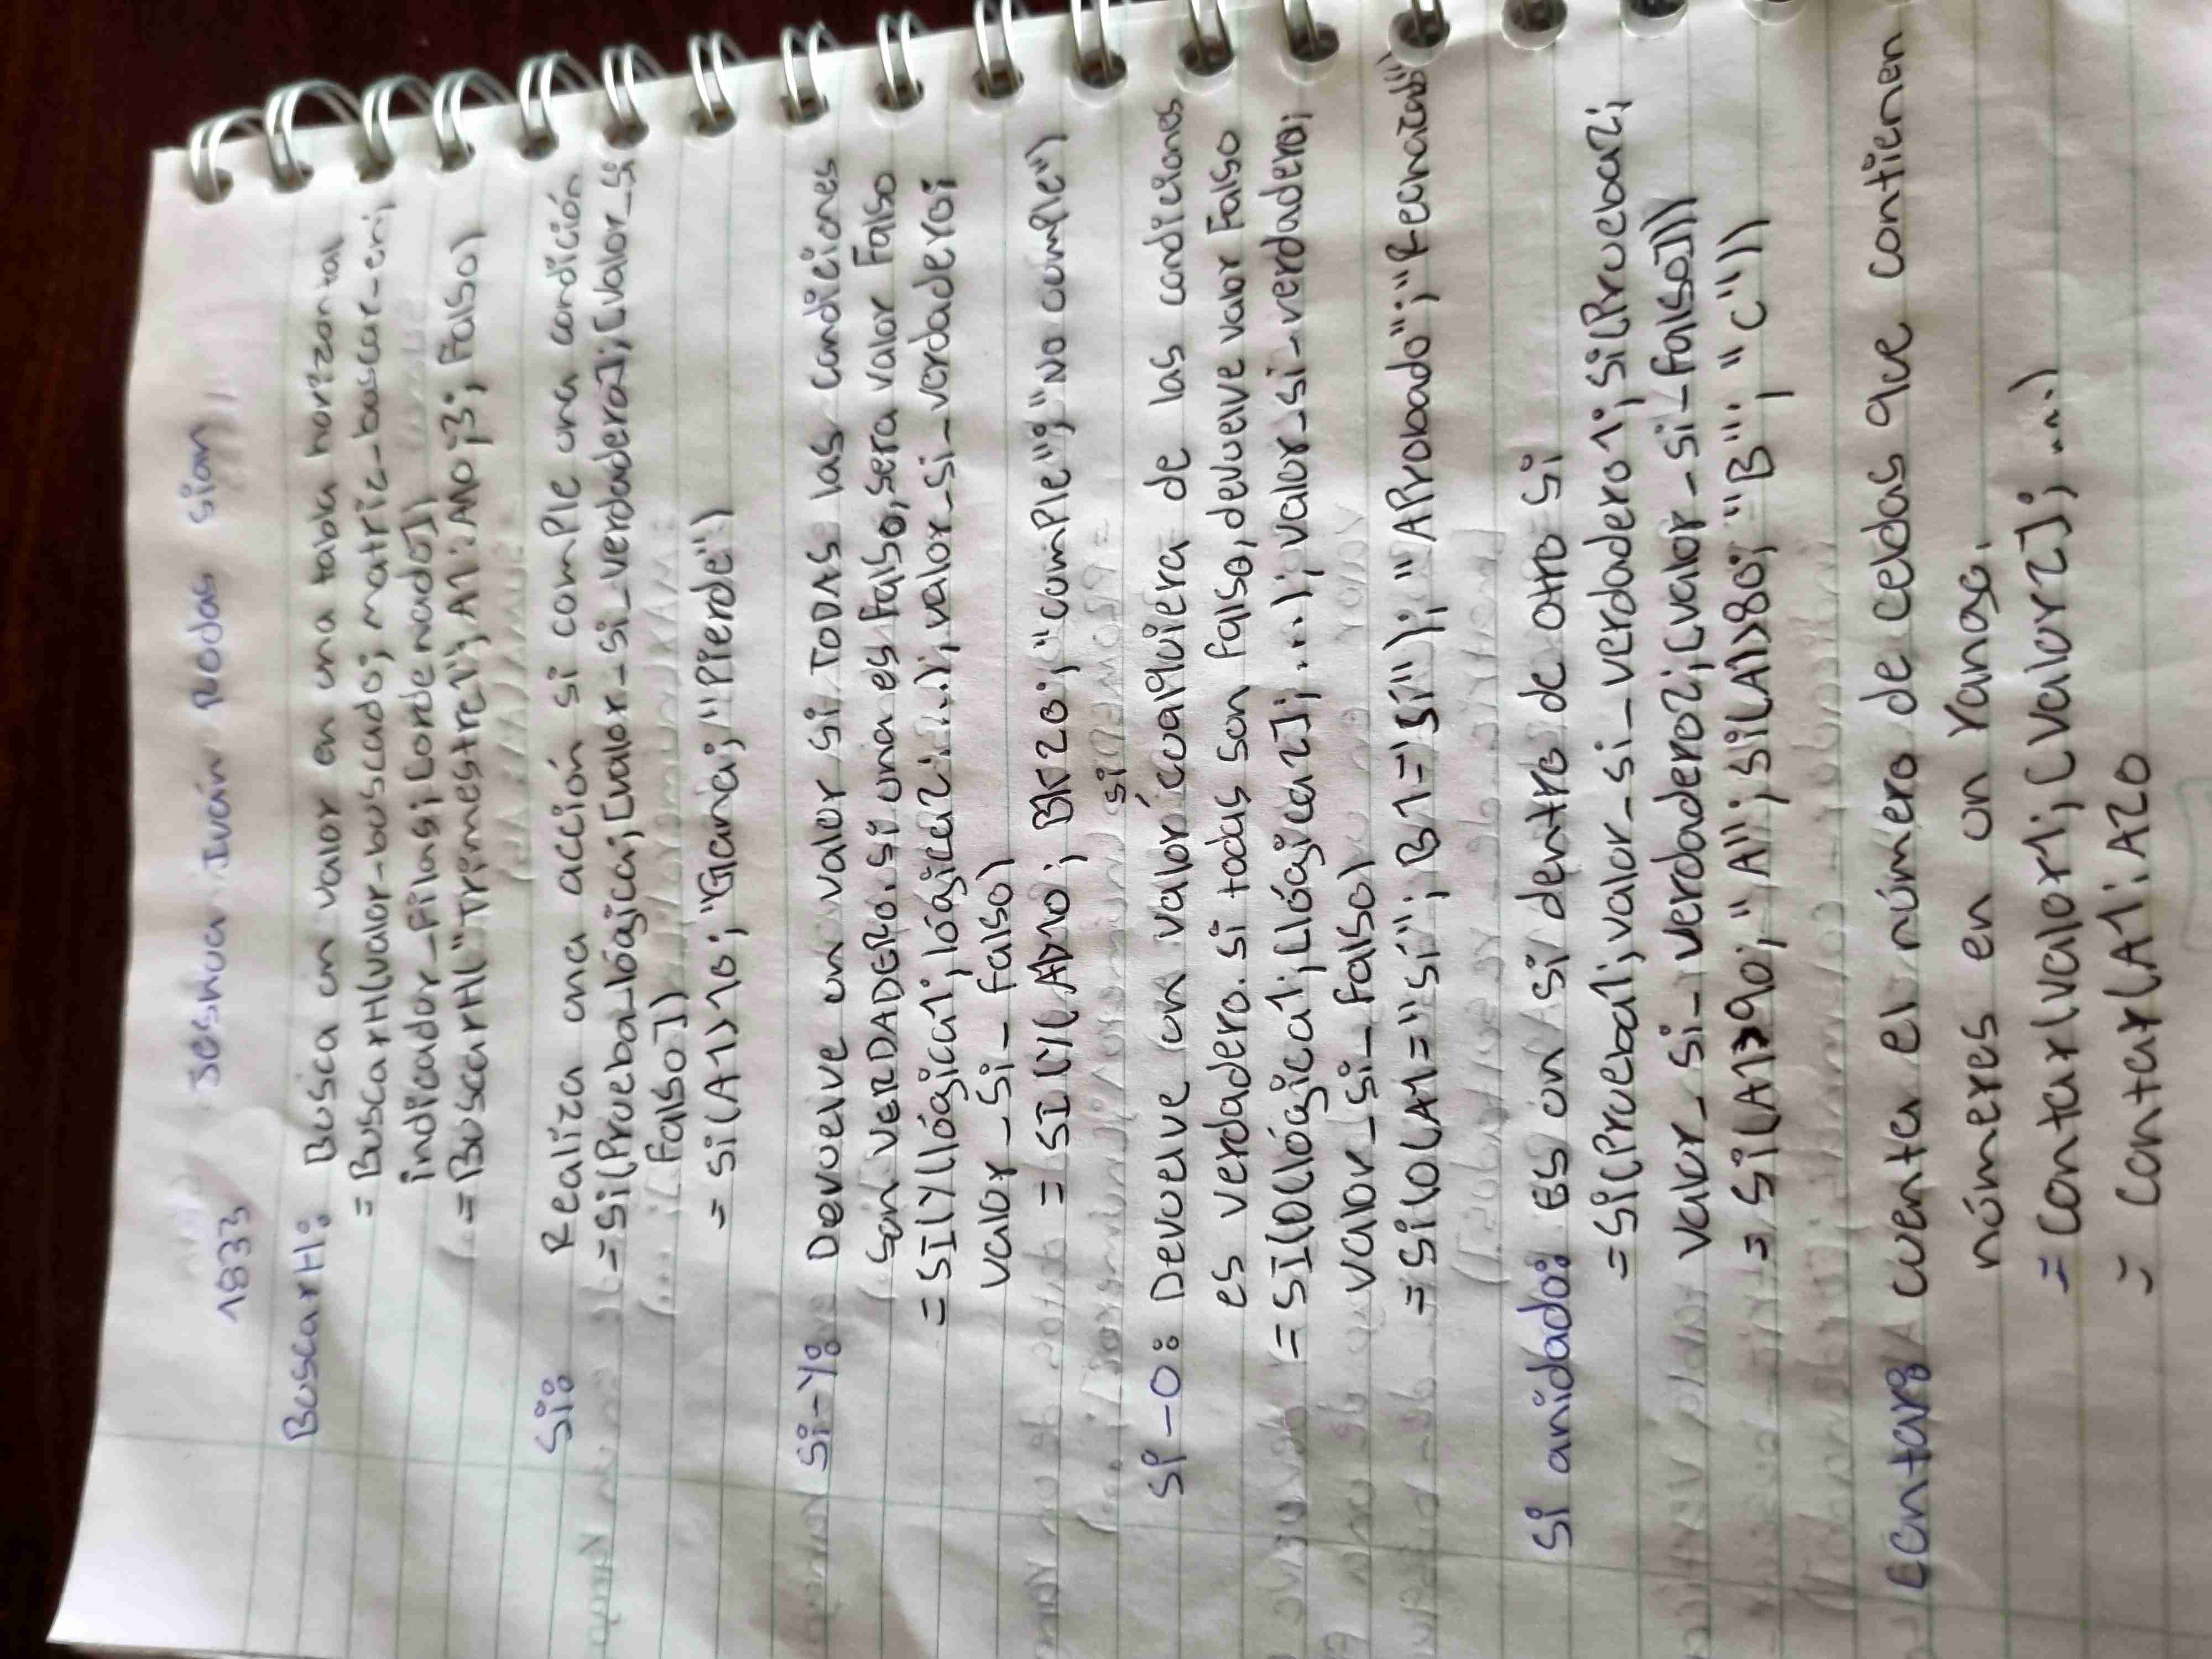 1833 Joshua Iván Rodas Sian
BuscarH: Busca un valor en una tabla horizontal
= BuscarH(valor-buscado; matric_buscar-en;
indicador_filas; [ordenado])
= BuscarH("Trimestre1"; A1:A10; 3; Falso)
Si: Realiza una acción si comple una condición
=Si(Prueba_lógica; [valor_si_verdadero]; [valor_si
Falso])
= Si(A1>10; "Gana; "Pierde")
Si-Y: Devuelve un valor si TODAS las condiciones
son VERDADERO. Si una es falso, sera valor Falso
=SI(Y(lógica1; lógica2; ...); valor_si_verdadero;
valor_si_falso)
= SI(Y(A1>10; B1<20; "comple"; "No comple")
Si-O: Devuelve un valor si coalquiera de las condiciones
es verdadero. Si todas son falso, devuelve valor Falso
=SI(O(Lógica1; [Lógica2]; ...); valor_si_verdadero;
valor_si_falso)
=Si(O(A1="Sí"; B1="Sí"); "Aprobado"; "Rechazado")
Si anidado: Es un Si dentro de otro Si
=Si(Prueba1; valor_si_verdadero1; Si(Prueba2;
valor_si_verdadero2; [valor_si_falso]))
= Si(A1>90; "A"; Si(A1>80; "B"; "C"))
Contar: cuenta el número de celdas que contienen
númeres en un rango.
= Contar(valor1; [valor2]; ...)
= Contar(A1:A20